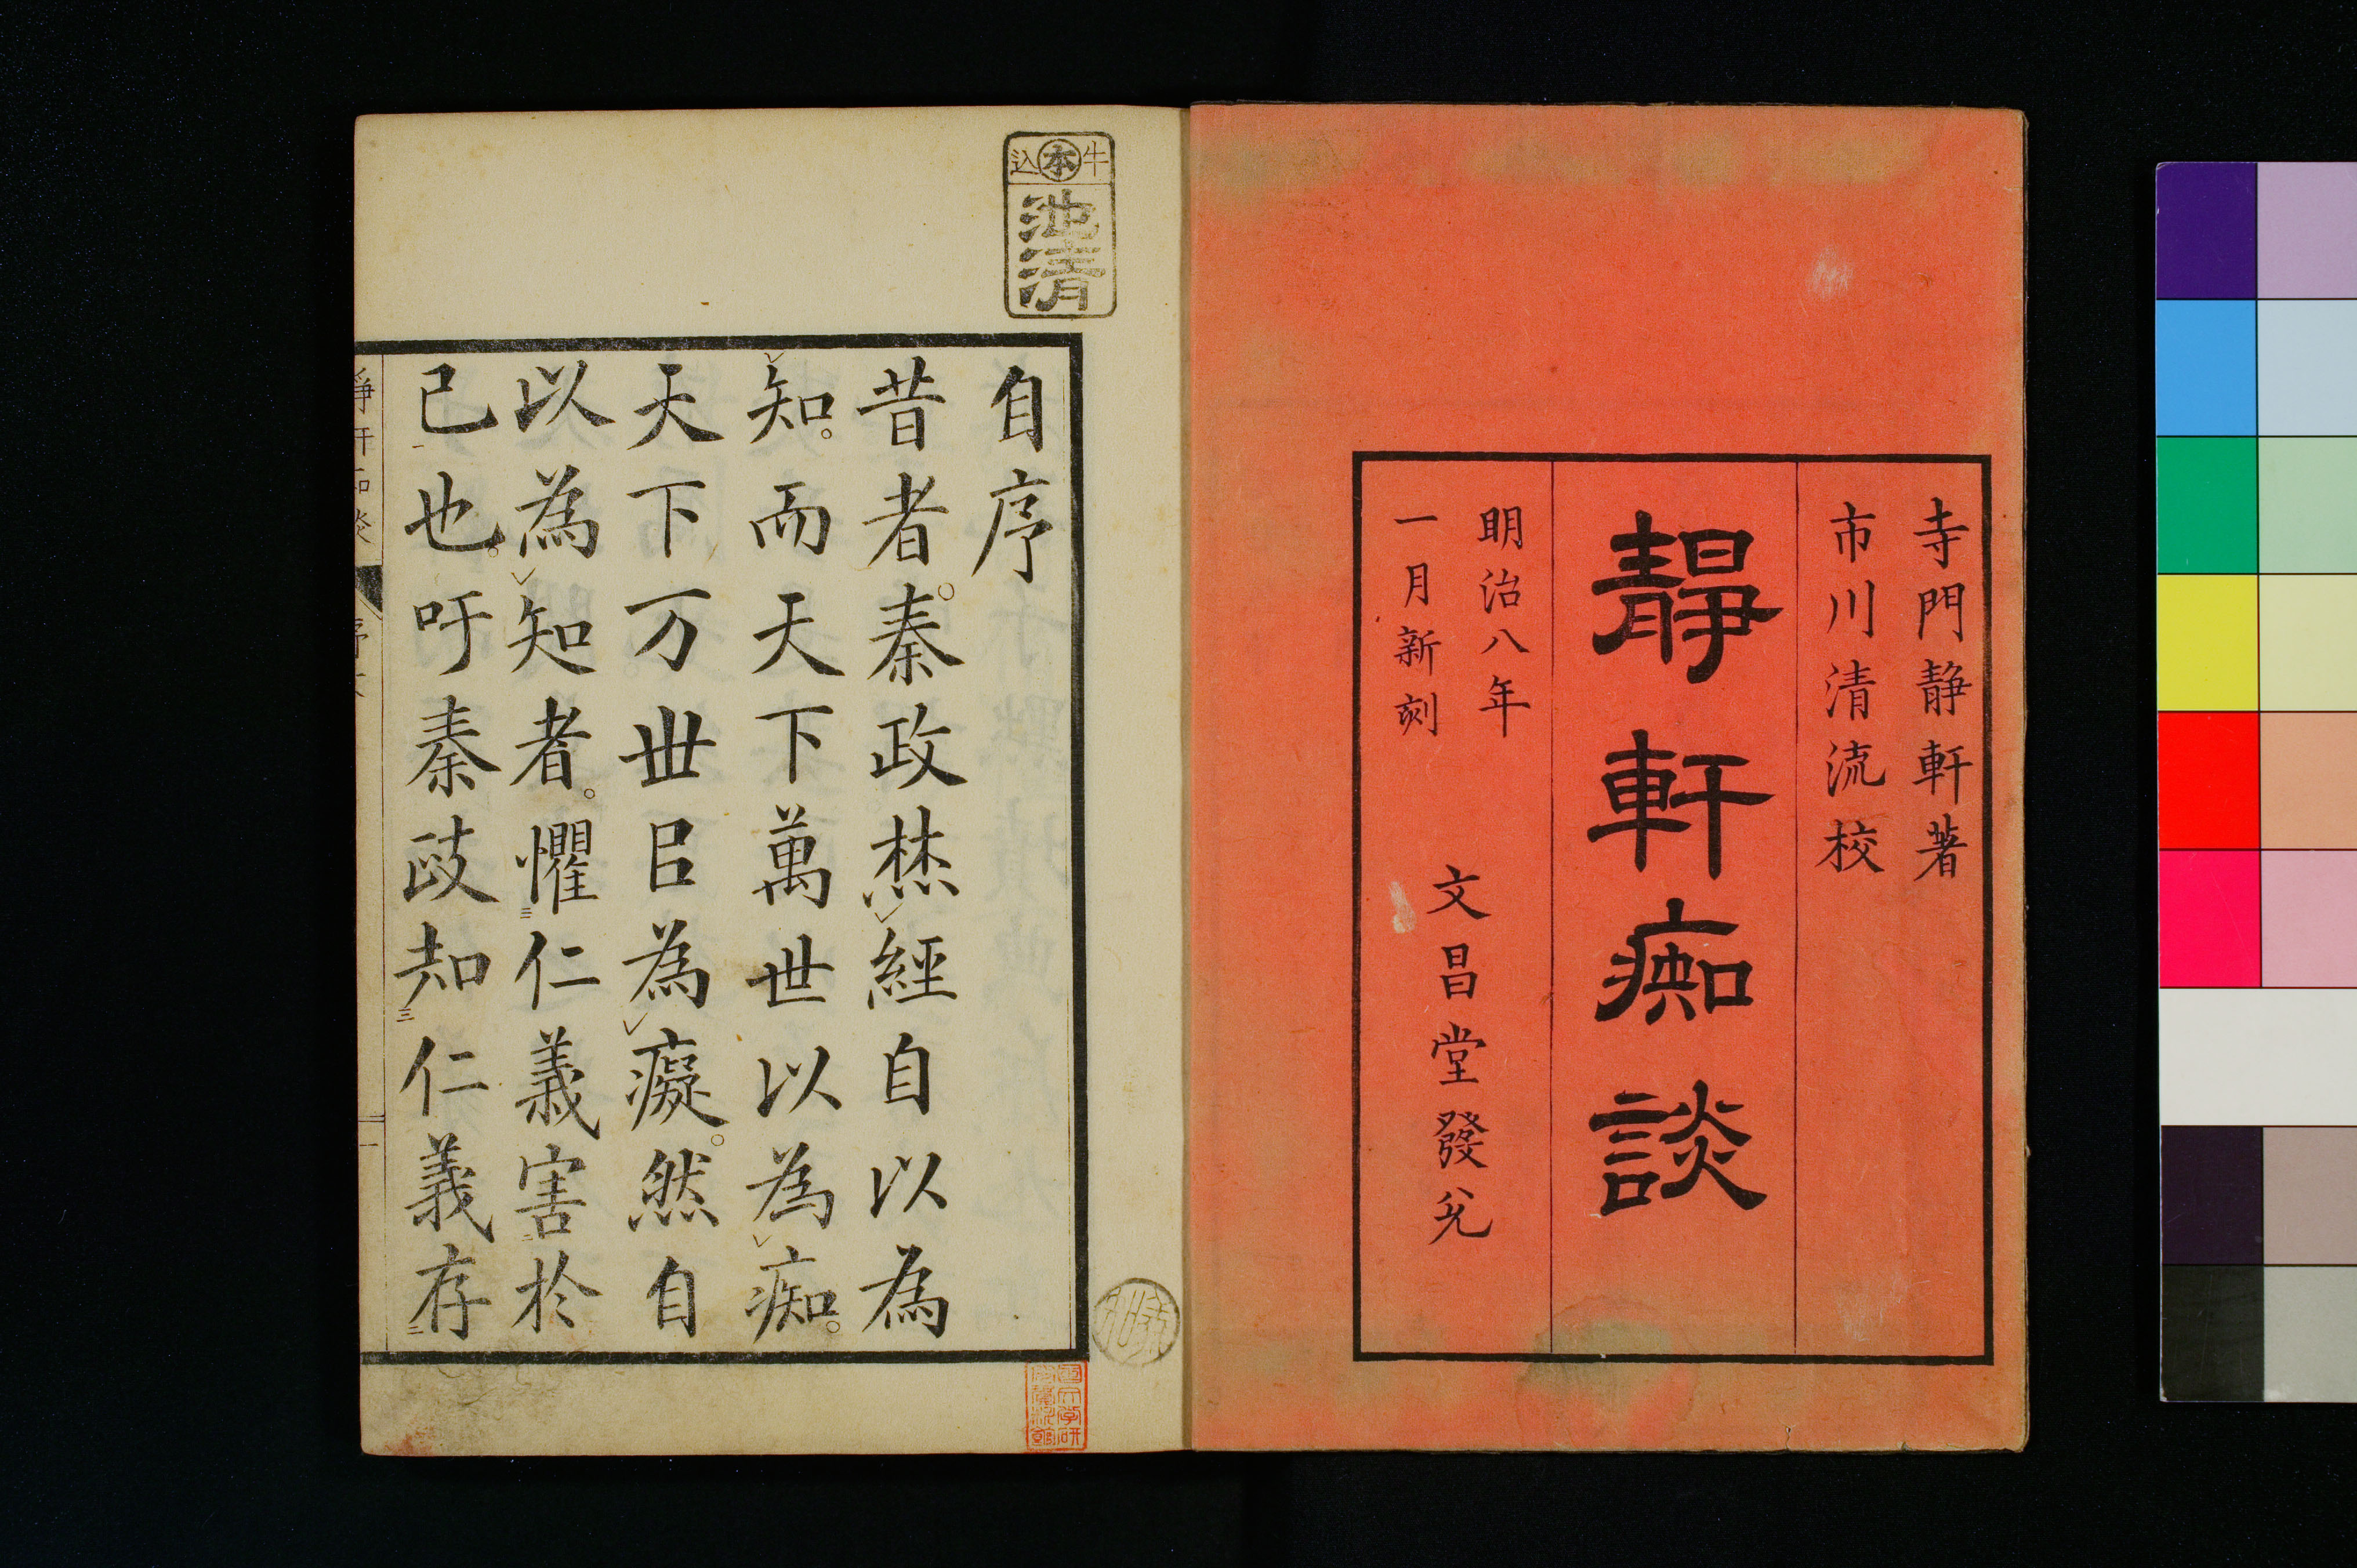 寺門静軒著
市川清流校
靜軒痴談
明治八年
一月新刻
文昌堂發兌
牛本込
池清
自序
昔者秦政焚經自以為
知而天下萬世以為痴
天下万世㠯為癡然自
以為知者懼仁義害於
已也吁秦政知仁義存